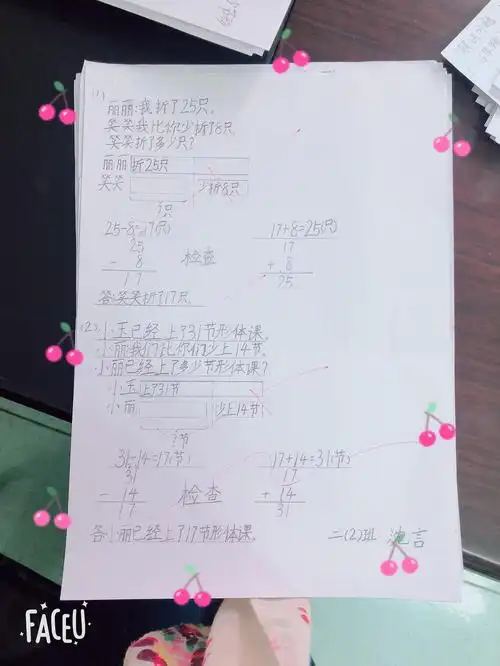 (1)
丽丽:我折了25只。
笑笑我比你少折了8只
笑笑折了多少只?
丽丽 折25只
笑笑 少折8只
?只
25-8=17(只) 17+8=25(只)
25 17
- 8 检查 + 8
17 25
答:笑笑折了17只.
(2) 小玉已经上了31节形体课。
小丽我们比你们少上14节.
小丽已经上了多少节形体课?
小玉 上了31节
小丽 少上14节
?节
31-14=17(节) 17+14=31(节)
31 17
- 14 检查 + 14
17 31
答:小丽已经上了17节形体课. 二(2)班 沈言
FACEU